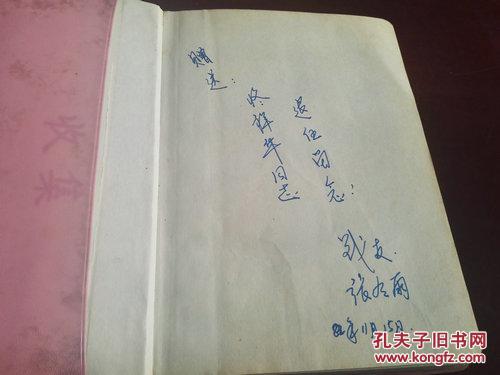 赠送:
佟祥华同志
退伍留念:
战友
张冬雨
年11月15日
收集
孔夫子旧书网
www.kongfz.com